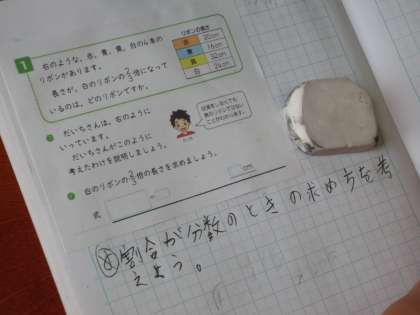 1
右のような、赤、青、黄、白の4本の
リボンがあります。
長さが、白のリボンの2/3倍になって
いるのは、どのリボンですか。
リボンの長さ
赤 20cm
青 16cm
黄 32cm
白 24cm
だいちさんは、右のように
いっています。
だいちさんがこのように
考えたわけを説明しましょう。
計算をしなくても
黄のリボンではない
ことがわかります。
白のリボンの2/3倍の長さを求めましょう。
式
cm
め 割合が分数のときの求め方を考
えよう。